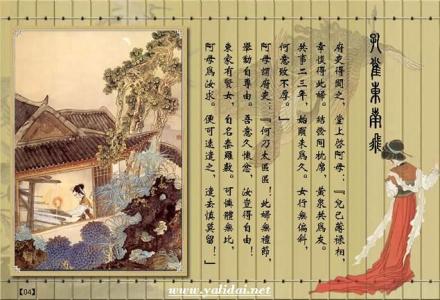 孔雀東南飛
府吏得聞之，堂上啓阿母：『兒已薄祿相，
幸復得此婦。結髮同枕席，黃泉共爲友。
共事二三年，始爾未爲久。女行無偏斜，
何意致不厚。』
阿母謂府吏：『何乃太區區！此婦無禮節，
舉動自專由。吾意久懷忿，汝豈得自由！
東家有賢女，自名秦羅敷。可憐體無比，
阿母爲汝求。便可速遣之，遣去慎莫留！』
【04】
www.yalidai.net